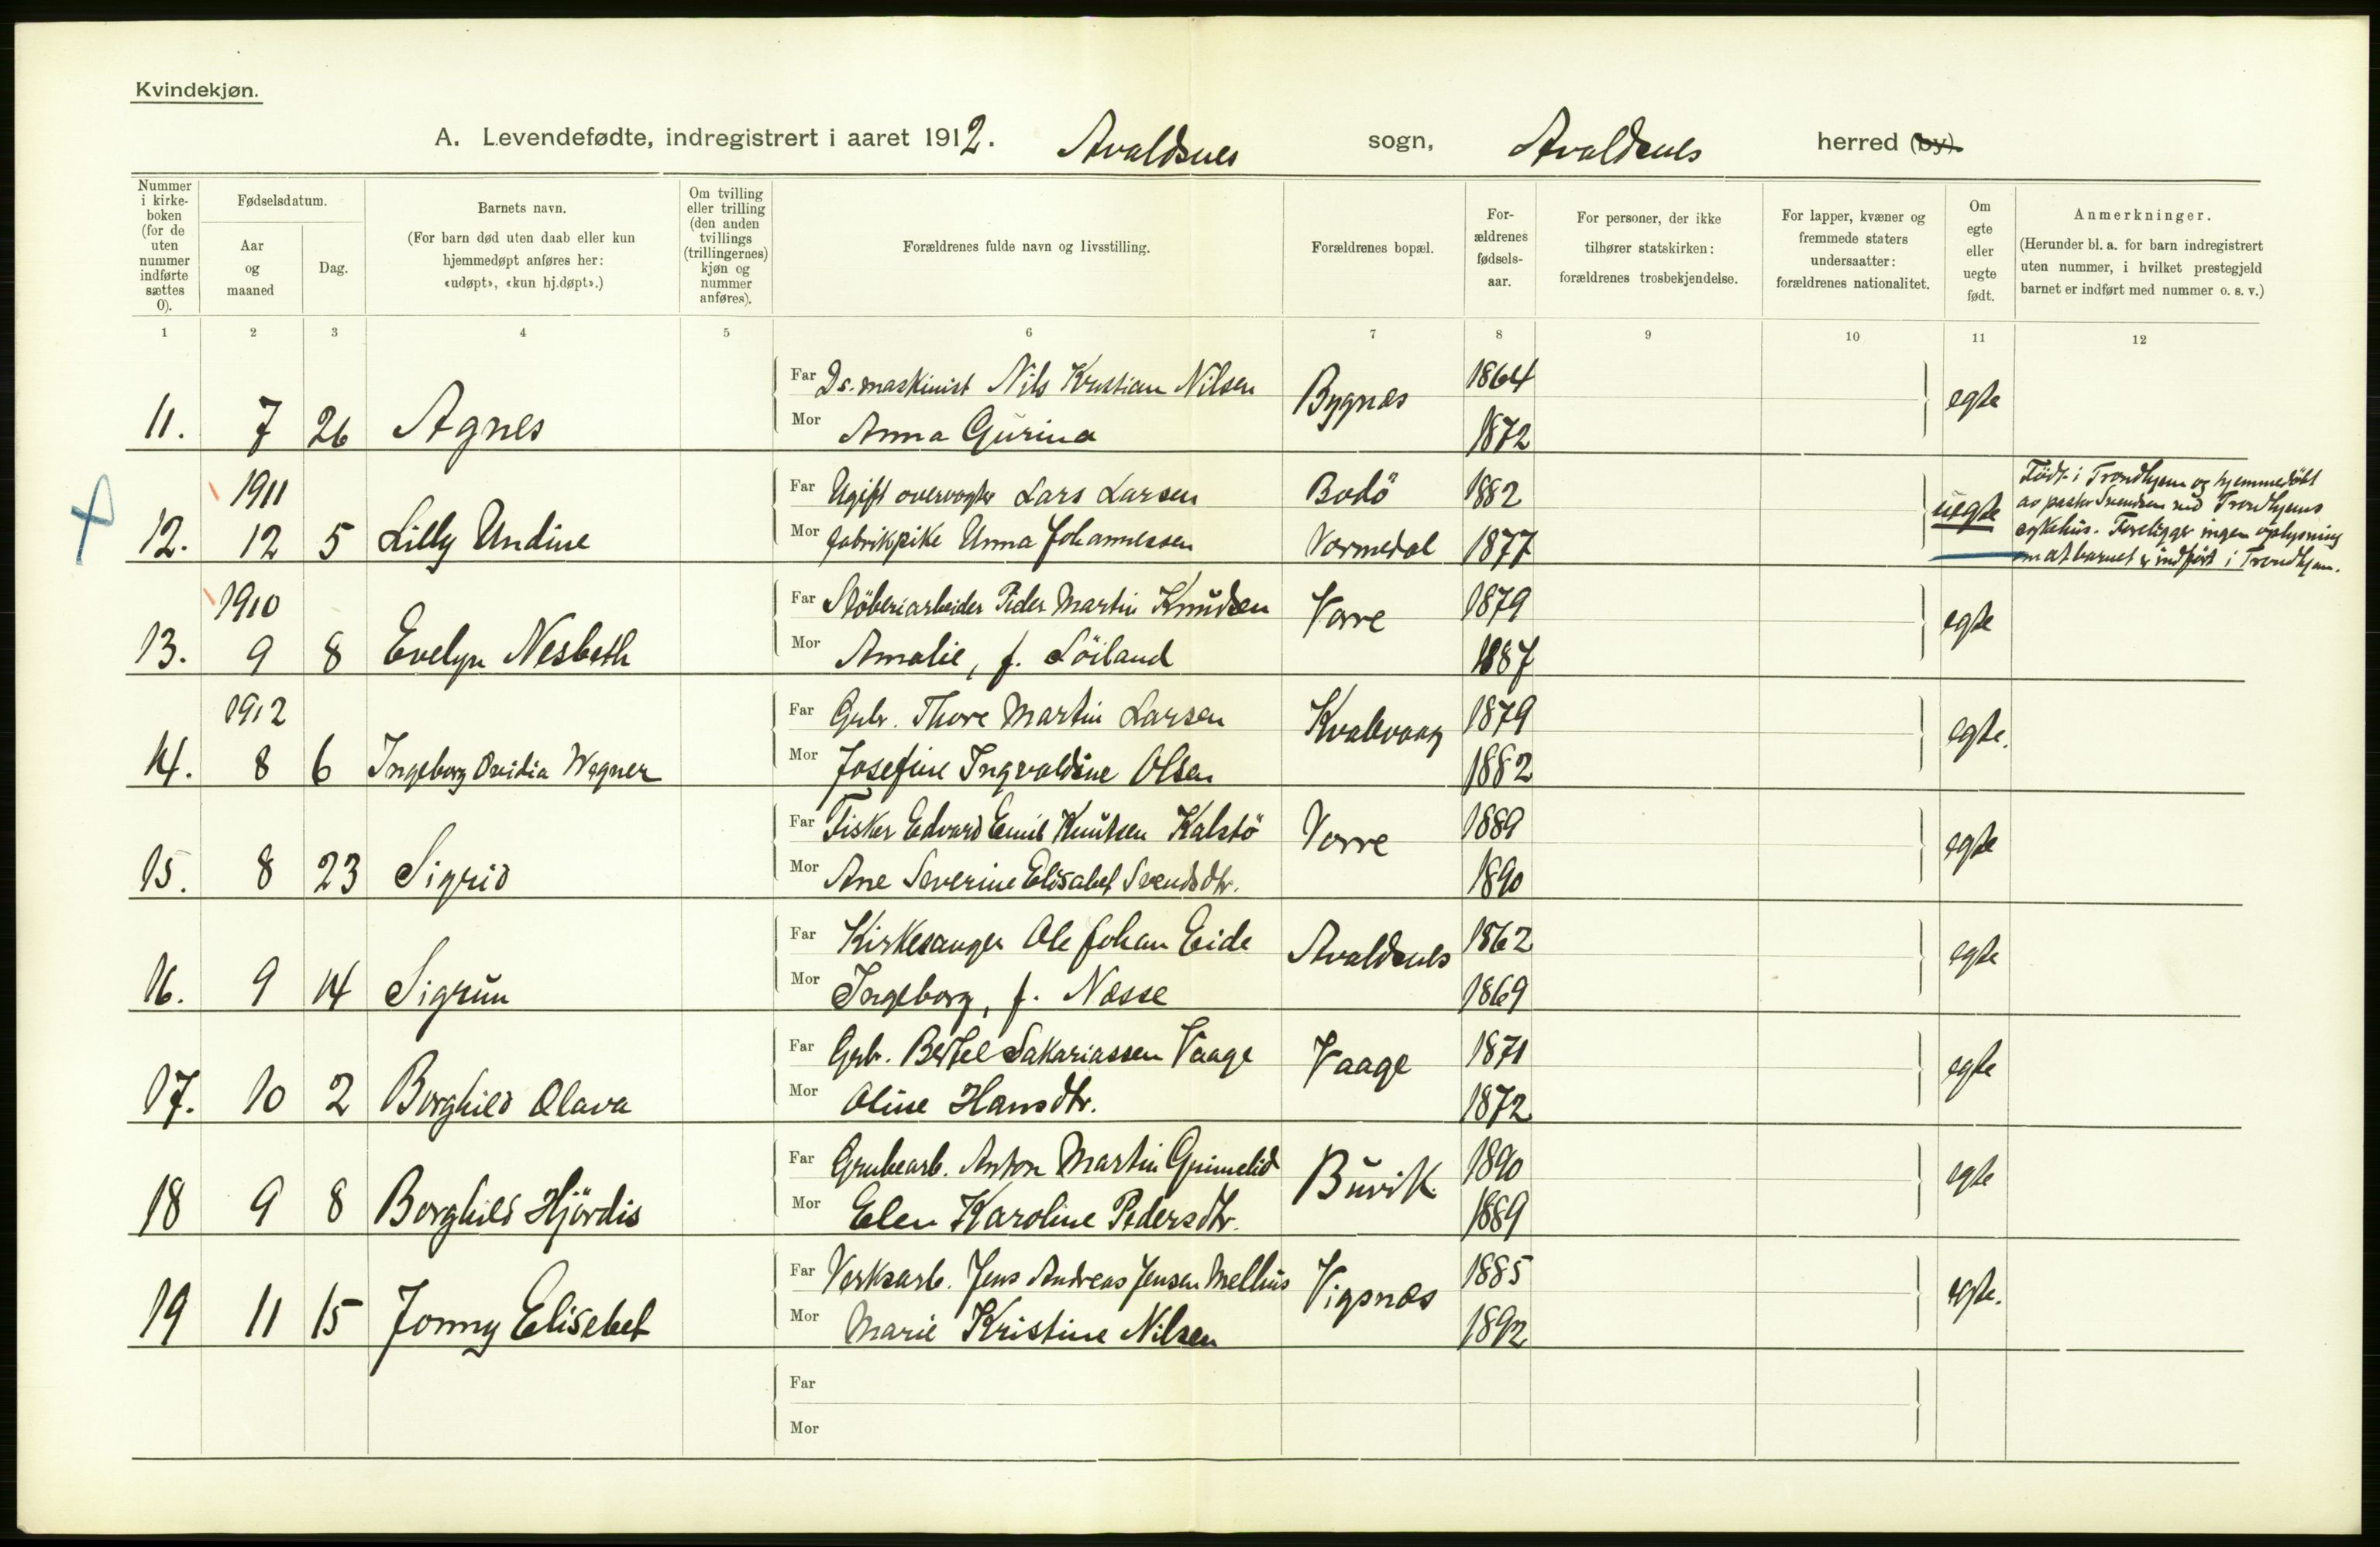 Kvindekjøn.
A. Levendefødte, indregistrert i aaret 1912. Avaldsnes sogn, Avaldsnes herred (by).
Nummer i kirke-boken (for de uten nummer indførte sættes 0).
Fødselsdatum.
Aar og maaned
Dag.
Barnets navn.
(For barn død uten daab eller kun hjemmedøpt anføres her: «udøpt», «kun hj.døpt».)
Om tvilling eller trilling (den anden tvillings (trillingernes) kjøn og nummer anføres).
Forældrenes fulde navn og livsstilling.
Forældrenes bopæl.
For-ældrenes fødsels-aar.
For personer, der ikke tilhører statskirken: forældrenes trosbekjendelse.
For lapper, kvæner og fremmede staters undersaatter: forældrenes nationalitet.
Om egte eller uegte født.
Anmerkninger.
(Herunder bl. a. for barn indregistrert uten nummer, i hvilket prestegjeld barnet er indført med nummer o. s. v.)
1 2 3 4 5 6 7 8 9 10 11 12
Far Ds. maskinist Nils Kristian Nilsen Bygnes 1864 egte
11. 7 26 Agnes Mor Anna Gurina 1872
1911 Far Ugift Lars Larsen Bodö 1882 uegte
12. 12 5 Lilly Undine Mor fabrikpike Anna Johannessen Vormedal 1877
Födt i Trondhjem og hjemmedöbt
av pastor Svendsen ved Trondhjems
sykehus. Foreligger ingen oplysning
om at barnet er indfört i Trondhjem.
1910 Far Stöberiarbeider Peder Martin Knudsen Vorre 1879 egte
13. 9 8 Evelyn Nesbeth Mor Amalie, f. Löiland 1887
1912 Far Grb. Thore Martin Larsen Kvalavaag 1879 egte.
14. 8 6 Ingeborg Ovidia Wagner Mor Josefine Ingvaldine Olsen 1882
Far Fisker Edvard Emil Knutsen Kalstö Vorre 1889 egte
15. 8 23 Sigrid Mor Ane Severine Elisabet Svendsdtr. 1890
Far Kirkesanger Ole Johan Eide Avaldsnes 1862 egte
16. 9 14 Sigrun Mor Ingeborg, f. Nesse 1869
Far Grb. Bertel Sakariassen Vaage Vaage 1871 egte
17. 10 2 Borghild Olava Mor Oline Hansdtr. 1872
Far Grubearb. Anton Martin Grimelid Buvik. 1890 egte
18 9 8 Borghild Hjördis Mor Elen Karoline Pedersdtr. 1889
Far Verksarb. Jens Andreas Jensen Melhus Vigsnes 1885 egte.
19 11 15 Jonny Elisebet Mor Marie Kristine Nilsen 1892
Far
Mor